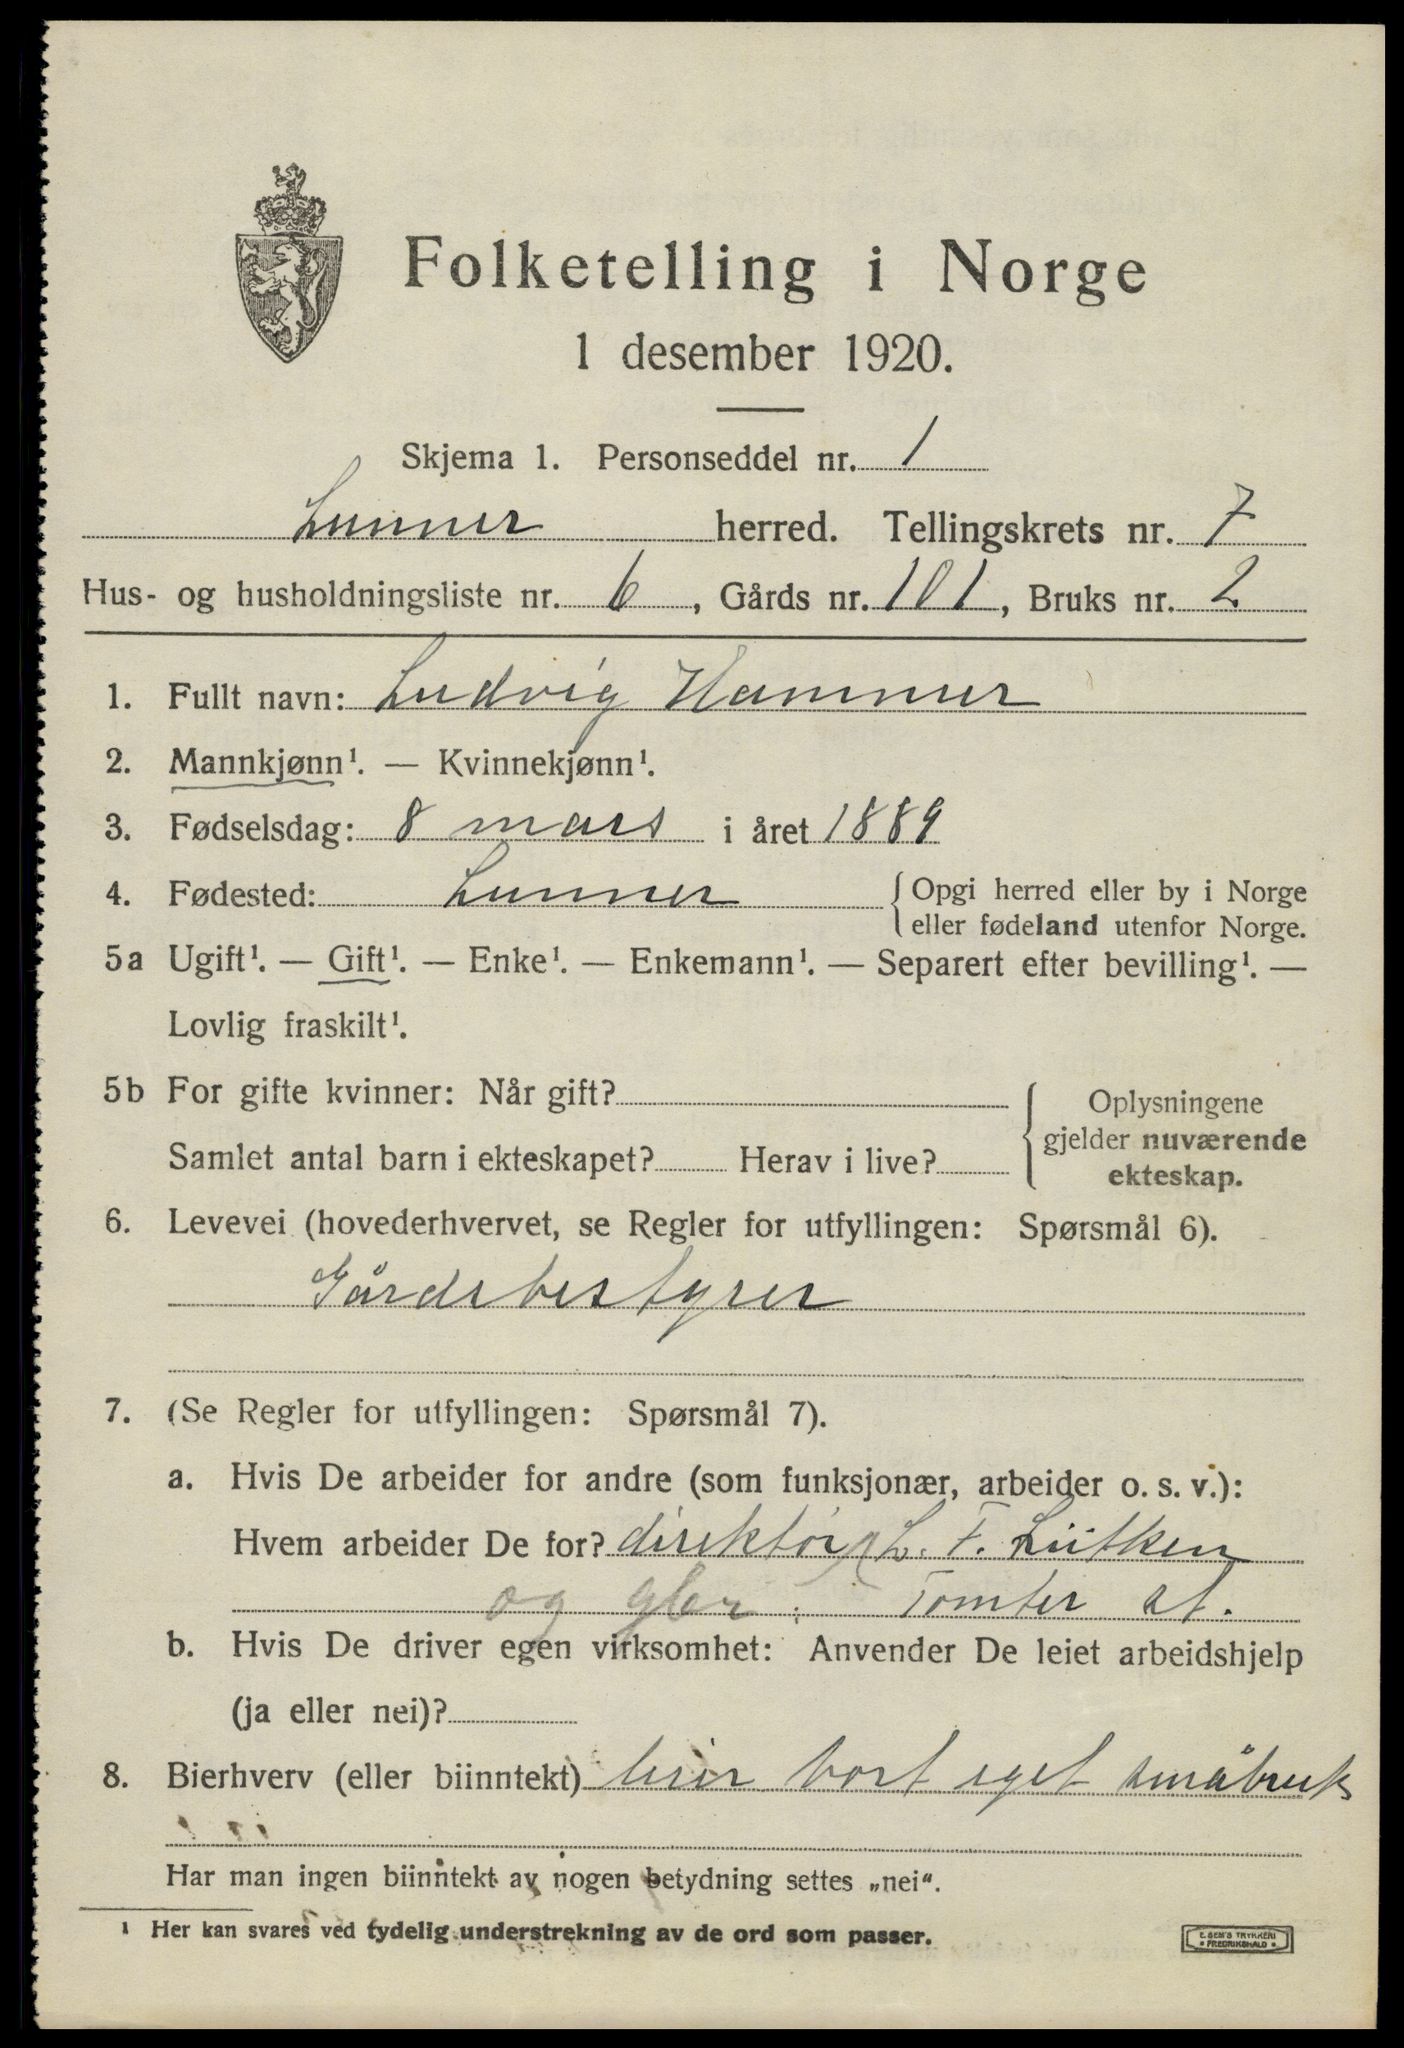 Folketelling i Norge
1 desember 1920.
Skjema 1. Personseddel nr. 1
Lunner herred. Tellingskrets nr. 7
Hus- og husholdningsliste nr. 6, Gårds nr. 101, Bruks nr. 2
1. Fullt navn: Ludvig Hammer
2. Mannkjønn¹. — Kvinnekjønn¹.
3. Fødselsdag: 8 mars i året 1889
4. Fødested: Lunner { Opgi herred eller by i Norge
eller fødeland utenfor Norge.
5a Ugift¹. — Gift¹. — Enke¹. — Enkemann¹. — Separert efter bevilling¹. —
Lovlig fraskilt¹.
5b For gifte kvinner: Når gift?
Samlet antal barn i ekteskapet? Herav i live?
{ Oplysningene
gjelder nuværende
ekteskap.
6. Levevei (hovederhvervet, se Regler for utfyllingen: Spørsmål 6).
Gårdsbestyrer
7. (Se Regler for utfyllingen: Spørsmål 7).
a. Hvis De arbeider for andre (som funksjonær, arbeider o. s. v.):
Hvem arbeider De for? direktör L. F. Lütken
og gbr. Tomter st.
b. Hvis De driver egen virksomhet: Anvender De leiet arbeidshjelp
(ja eller nei)?
8. Bierhverv (eller biinntekt) leier bort eget småbruk
Har man ingen biinntekt av nogen betydning settes „nei“.
¹ Her kan svares ved tydelig understrekning av de ord som passer.
E. SEM'S TRYKKERI
• FREDRIKSHALD •